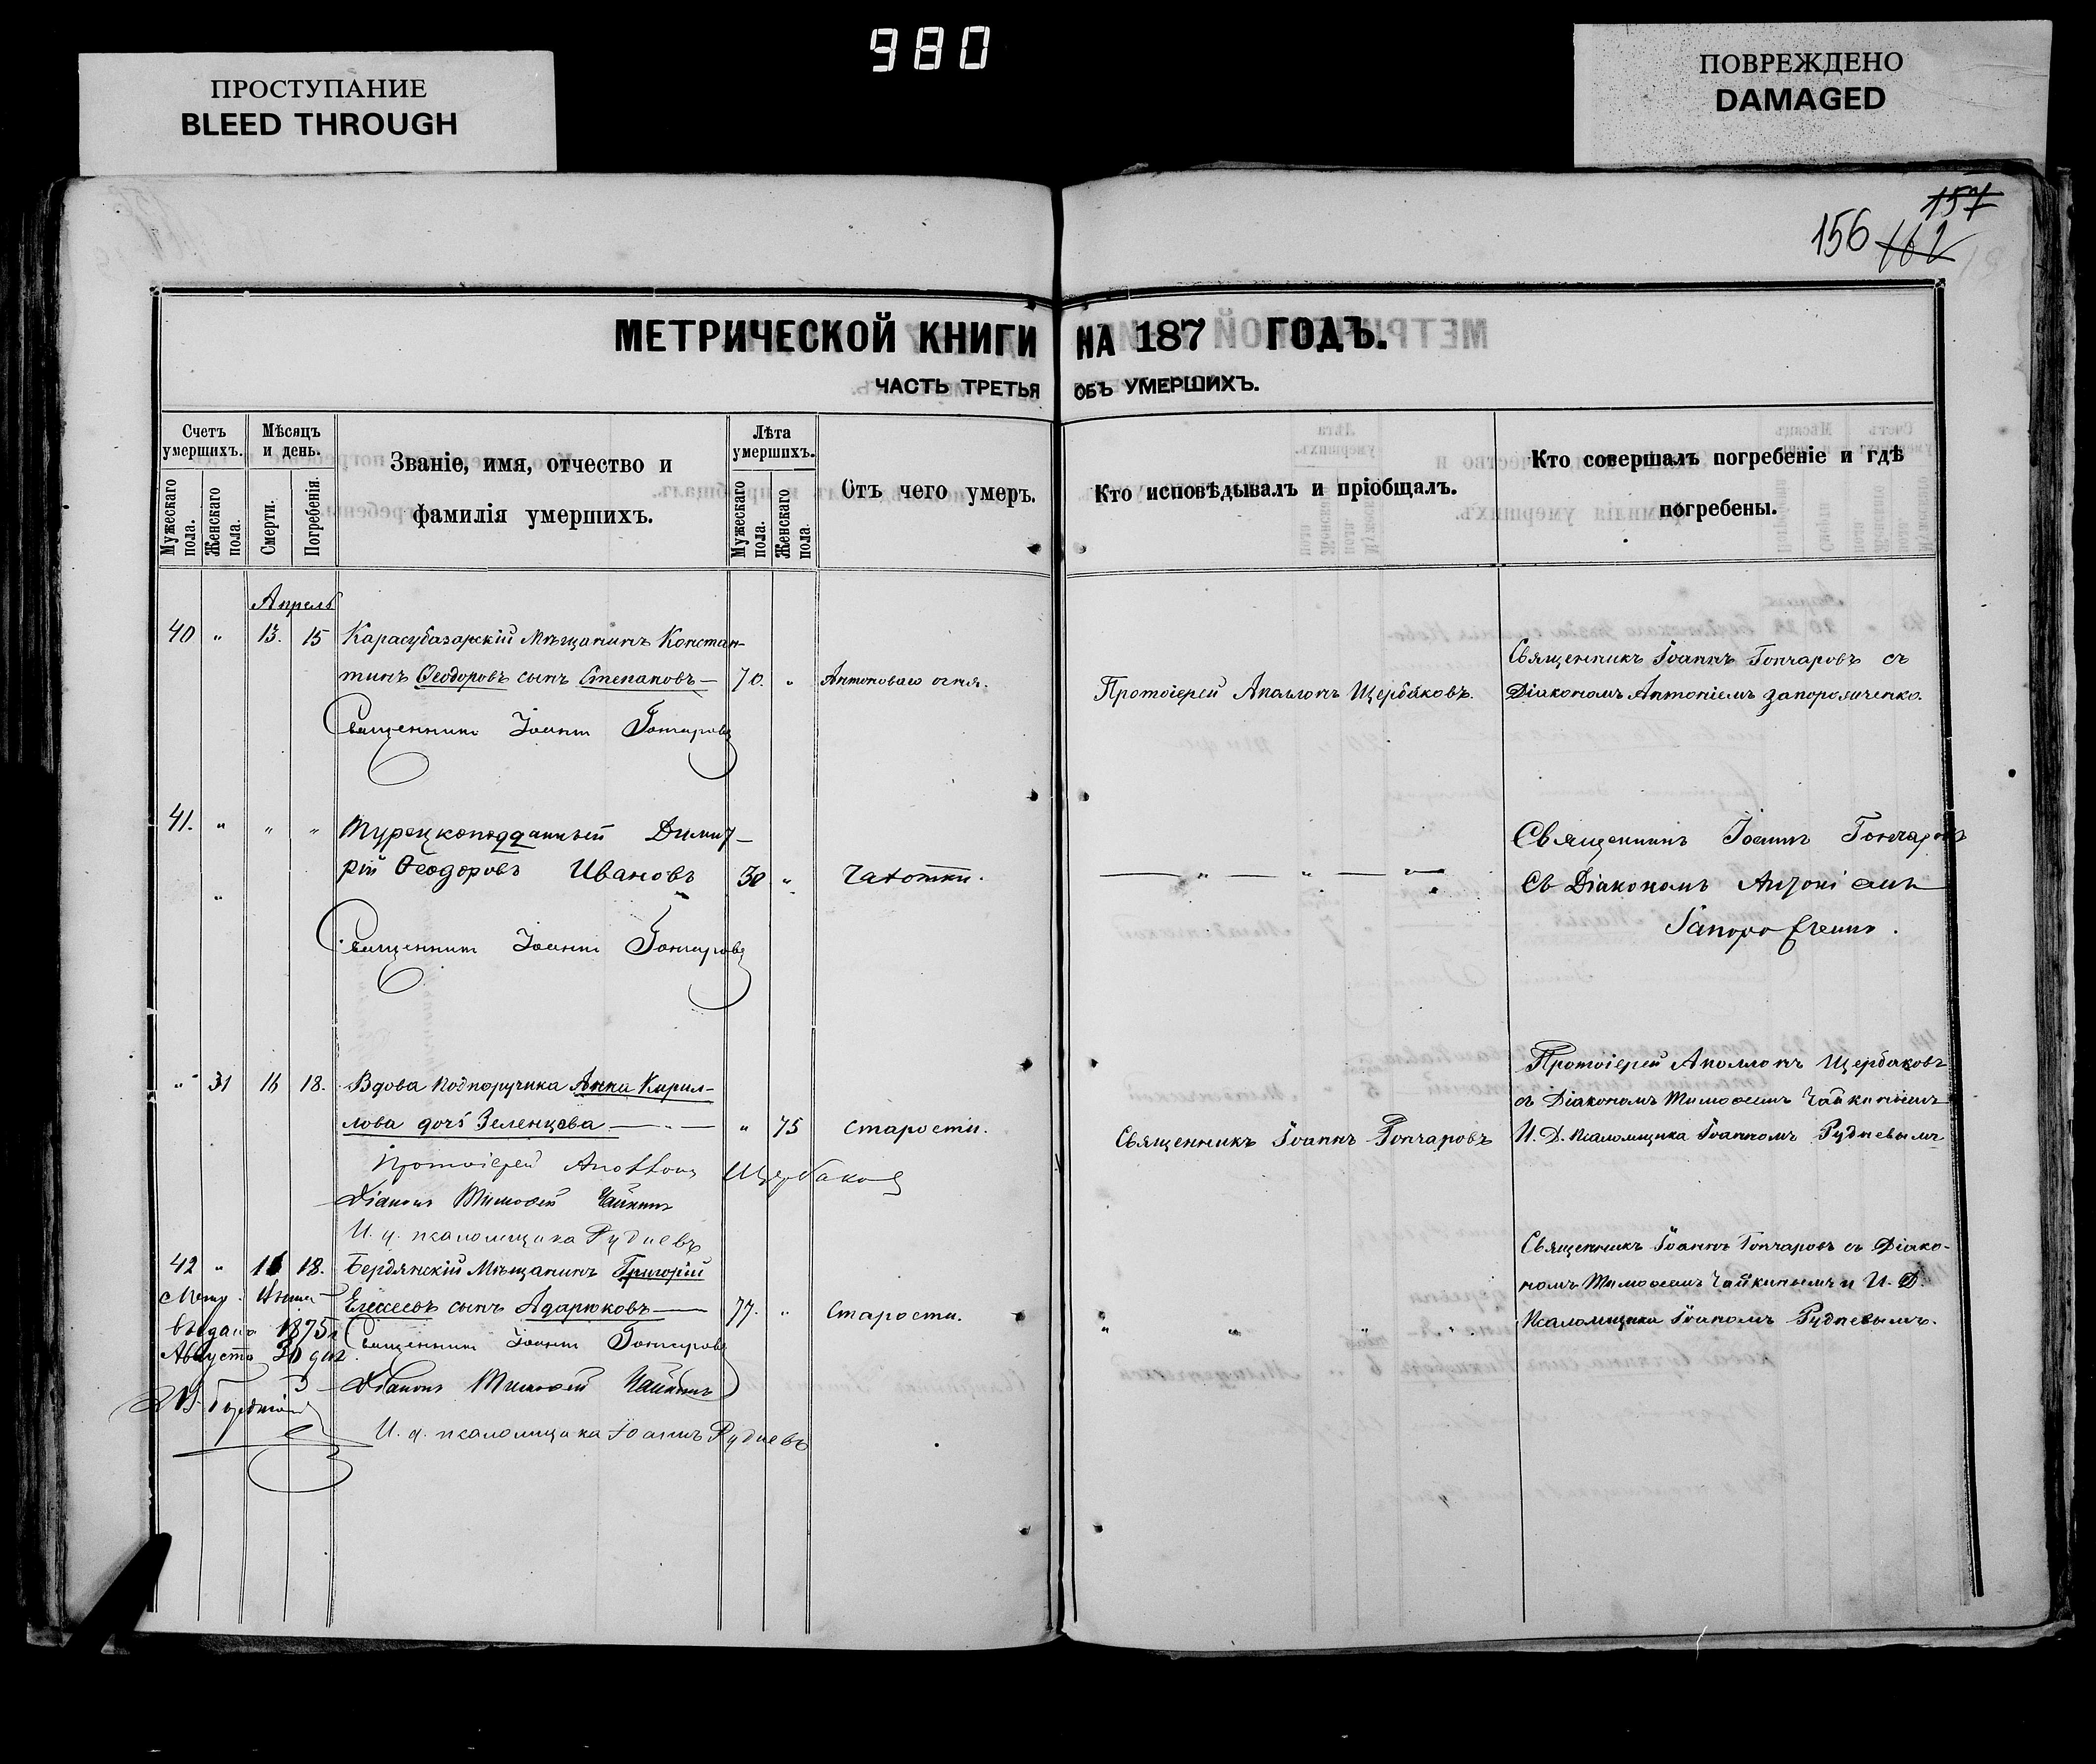 980
ПРОСТУПАНИЕ
BLEED THROUGH
ПОВРЕЖДЕНО
DAMAGED
157
156 162
МЕТРИЧЕСКОЙ КНИГИ НА 187 ГОДЪ.
ЧАСТЬ ТРЕТЬЯ ОБЪ УМЕРШИХЪ.
Счетъ умершихъ.
Мужескаго пола.
Женскаго пола.
Мѣсяцъ и день.
Смерти.
Погребенія.
Званіе, имя, отчество и
фамилія умершихъ.
Лѣта умершихъ.
Мужескаго пола.
Женскаго пола
Отъ чего умеръ.
Кто исповѣдывалъ и пріобщалъ.
Кто совершалъ погребеніе и гдѣ
погребены.
Апрель
40 „ 13. 15 Карасубазарскій Мѣщанинъ Констан-
тинъ Ѳеодоровъ сынъ Степановъ — 70. „ Антоноваго огня.
Протоіерей Апаллонъ Щербаковъ.
Священникъ Іоаннъ Гончаровъ съ
Діакономъ Антоніемъ Запорожченко.
Священникъ Іоаннъ Гончаровъ
41. „ „ „ Турецкоподданный Димит-
рій Ѳеодоровъ Ивановъ 30 „ Чахотки.
— „ — „ — „ —
Священникъ Іоаннъ Гончаровъ
Съ Діакономъ Антоніемъ
Запорожченко.
Священникъ Іоаннъ Гончаровъ
„ 31 16 18. Вдова Подпоручика Анна Кирил-
лова дочь Зеленцова — „ — „ 75 Старости.
Священникъ Іоаннъ Гончаровъ
Протоіерей Аполлонъ Щербаковъ
съ Діакономъ Тимофеемъ Чайкинымъ
И. Д. Псаломщика Іоанномъ Рудневымъ
Протоіерей Аполлонъ Щербаковъ
Діаконъ Тимофей Чайкинъ
И. д. псаломщика Рудневъ
42 „ 16 18. Бердянскій Мѣщанинъ Григорій
Елесеевъ сынъ Адарюковъ — 77. „ Старости.
„ „ „ „
Священникъ Іоаннъ Гончаровъ съ Діако-
номъ Тимофеемъ Чайкинымъ и И. Д.
Псаломщика Іоаномъ Рудневымъ.
Метр.
выдано 1875
Августа 30 дня
Священникъ Іоаннъ Гончаровъ
Діаконъ Тимофей Чайкинъ
И. д. псаломщика Іоаннъ Рудневъ